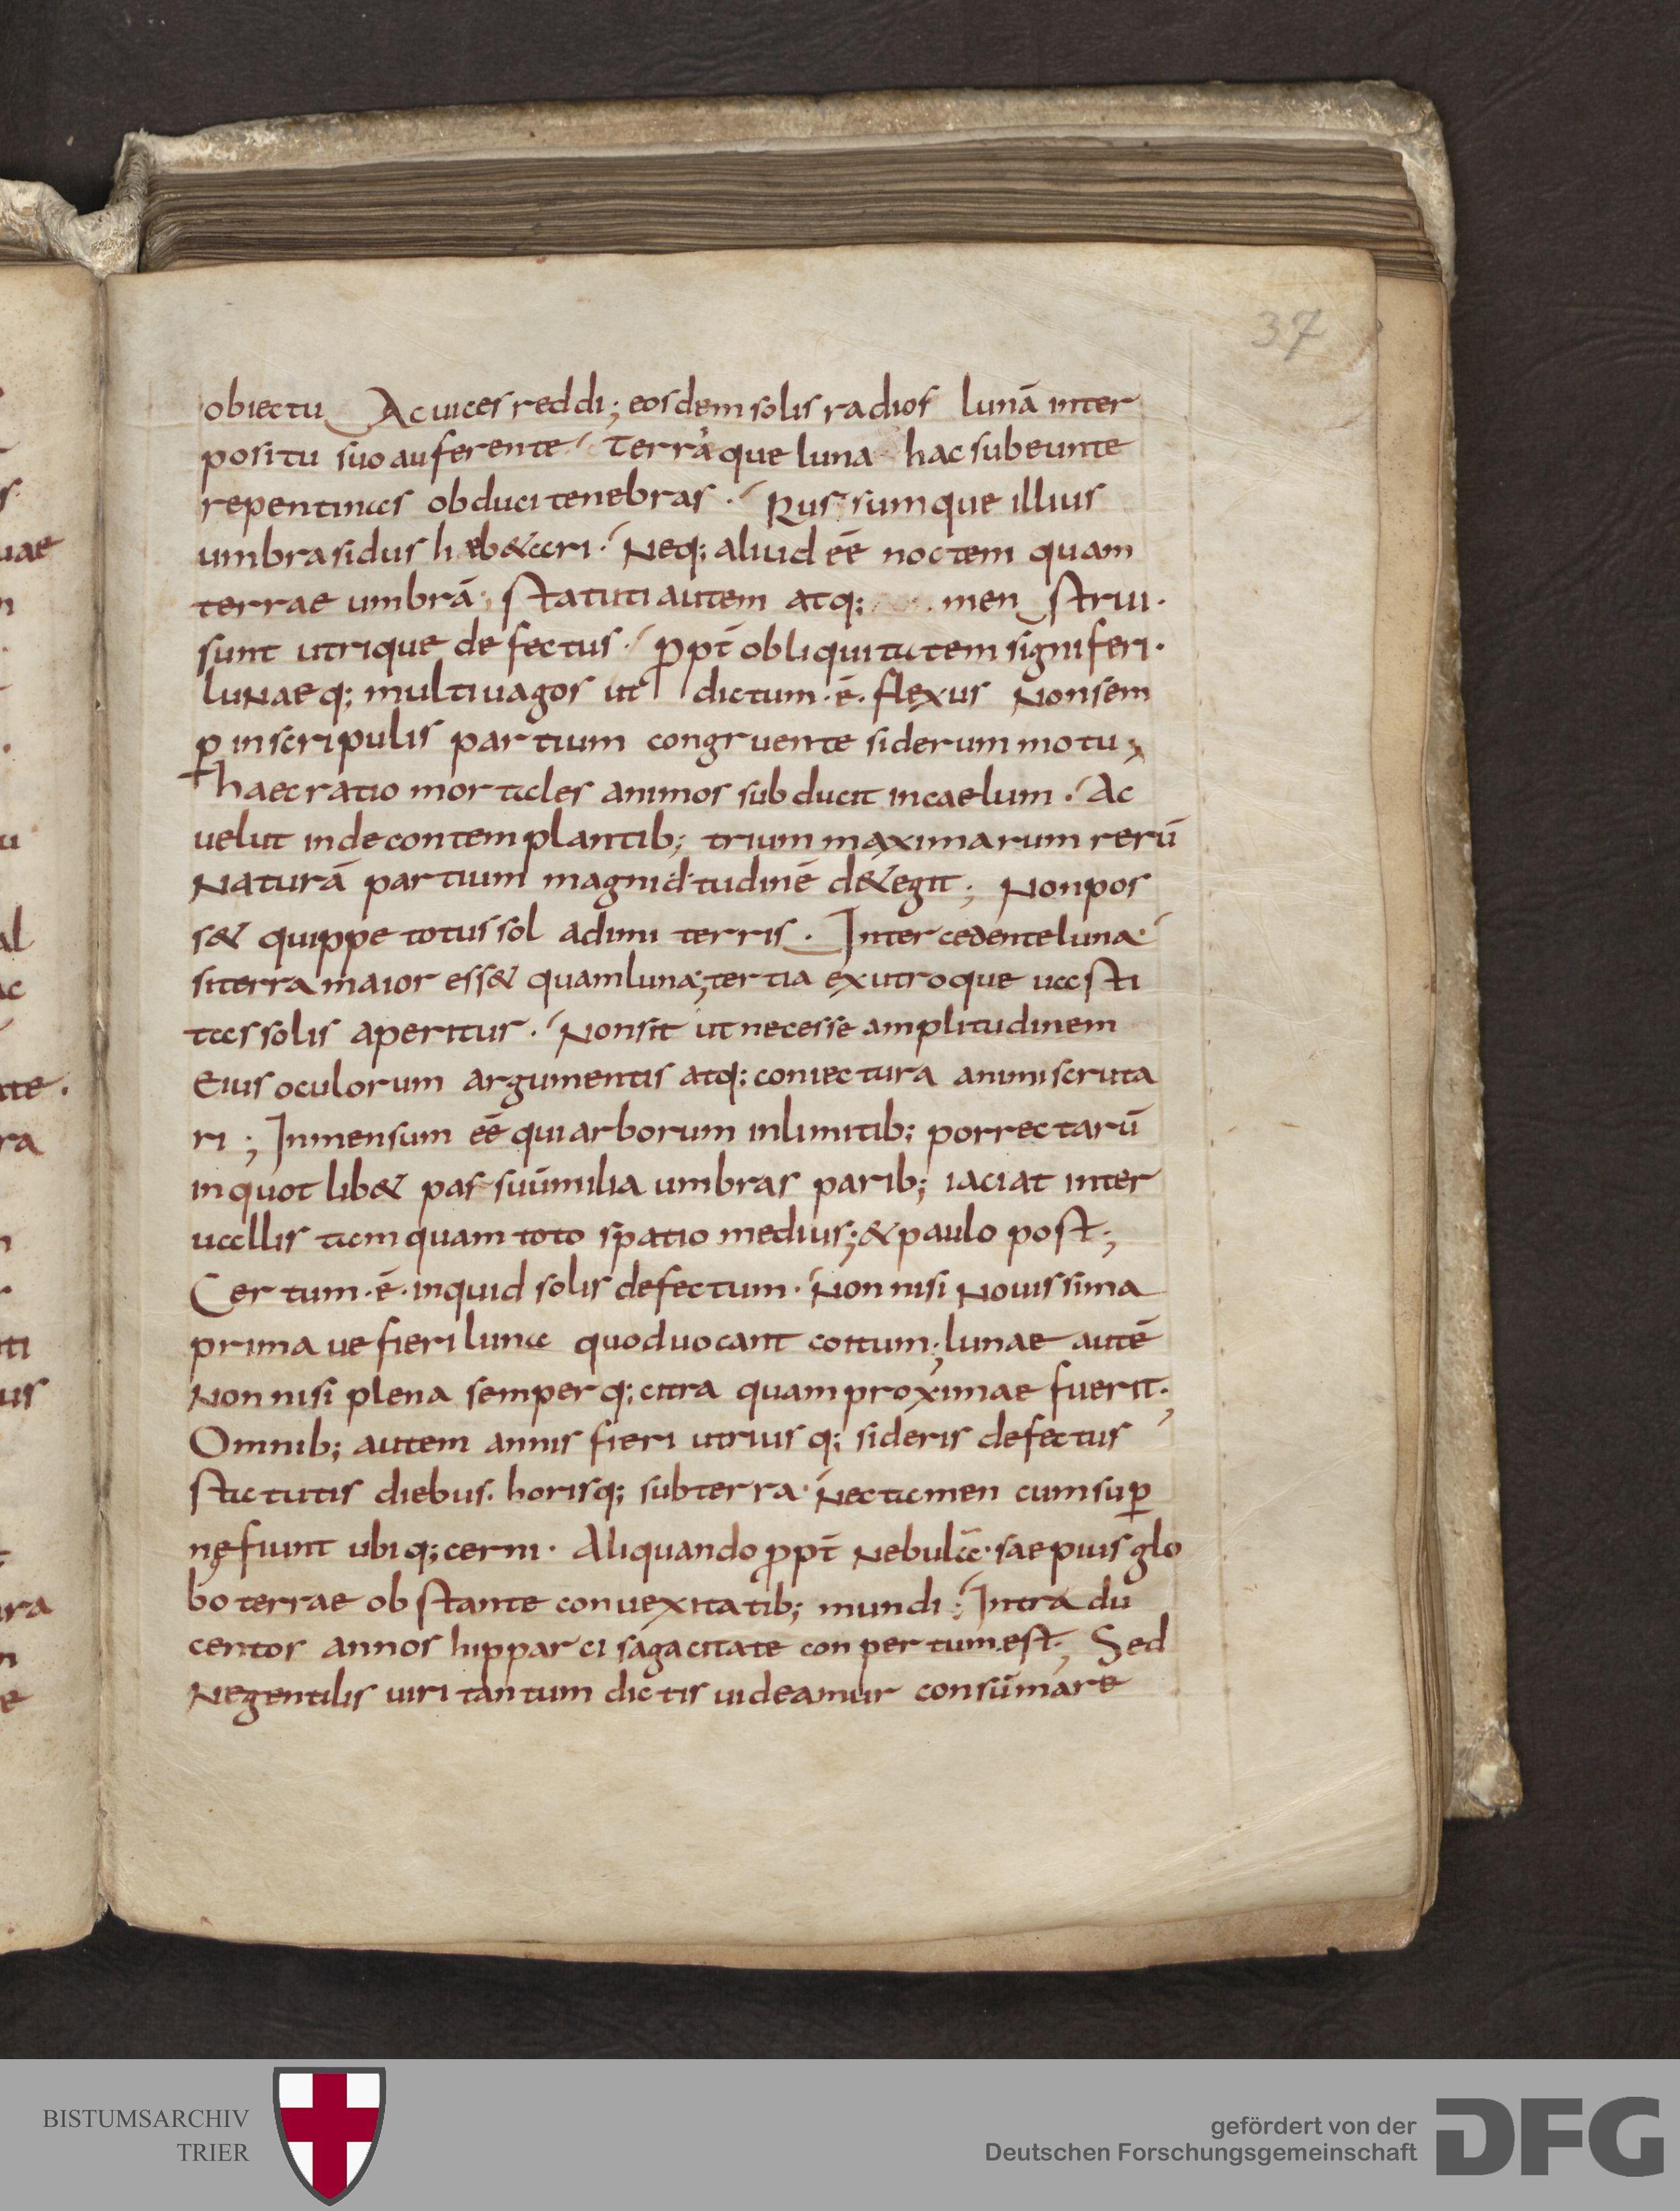 37
obiectu Ac uices reddi; eosdem solis radios lunā inter
positu suo auferente terrá que luna hac subeunte
repentinas obduci tenebras. Rus sumque illius
umbra sidus hæb&ari. Neq; aliud ēē noctem quam
terrae umbrā. statuti autem atq; men strui.
sunt utrique defectus. ꝓpt̄ obliquitatem signiferi.
luNaeq; multiuagos ut dictum. ē. flexus Non sem
ꝑ in scripulis partium congruente siderum motu;
haec ratio mortales animos subducit in caelum. Ac
uelut inde contemplantib; trium maximarum rerū
Naturā partium magnid tudinē d&egit; Non pos
s& quippe totus sol adimi terris. Intercedente luna.
si terra maior ess& quam luna; tertia ex utroque uasti
tas solis aperitur. Non sit ut necesse amplitudinem
Eius oculorum argumentis atq; coniectura animi scruta
ri; Inmensum ēē qui arborum inlimitib; porrectarū
in quot lib& pas suūmilia umbras parib; iaciat inter
uallis tamquam toto spatio medius; & paulo post;
Certum. ē. inquid solis defectum. Non nisi Nouissima
prima ue fieri luna quod uocant coitum; lunae autē
Non nisi plena semperq; citra quam proximae fuerit;
Omnib; autem annis fieri utriusq; sideris defectus
statutis diebus. horisq; sub terra. Nec tamen cum suꝑ
nę fiunt ubiq; cerni. Aliquando ꝓpt̄ Nebulā. saepius glo
bo terrae obstante conuexitatib; mundi; Intra du
centos annos hipparci sagacitate conpertum est; Sed
Ne gentilis uiri tantum dictis uideamur consūmare
uae
ra
us
BISTUMSARCHIV
TRIER
gefördert von der
Deutschen Forschungsgemeinschaft
DFG